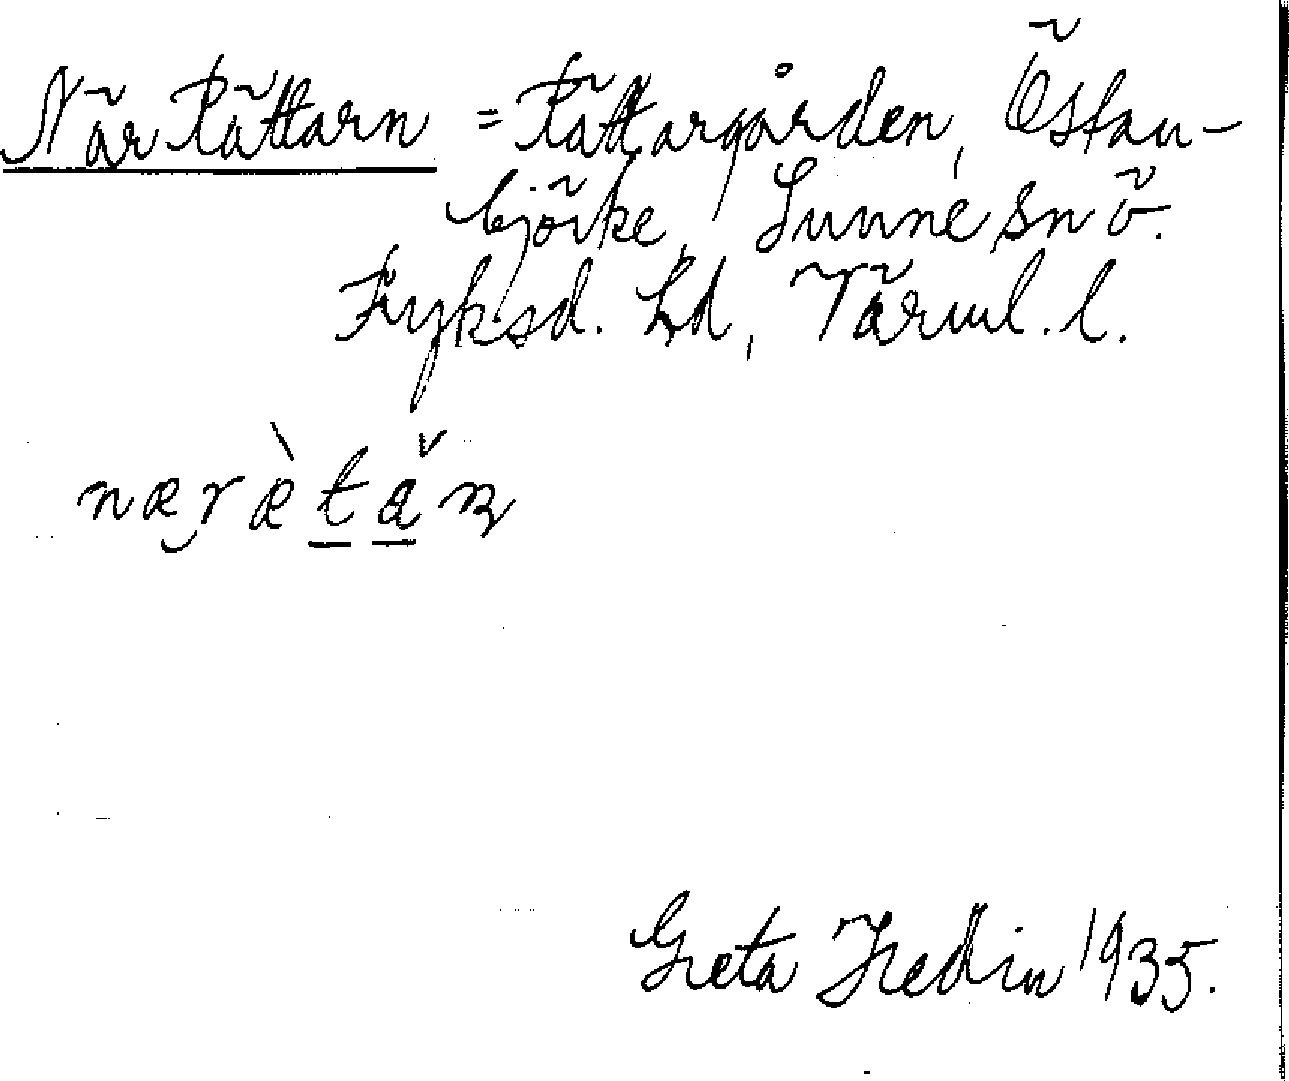 När Rättarn = Rättargården, Östan-
björke, Sunne sn ö.
Fryksd. hd, Värml. l.
Greta Hedin 1935.